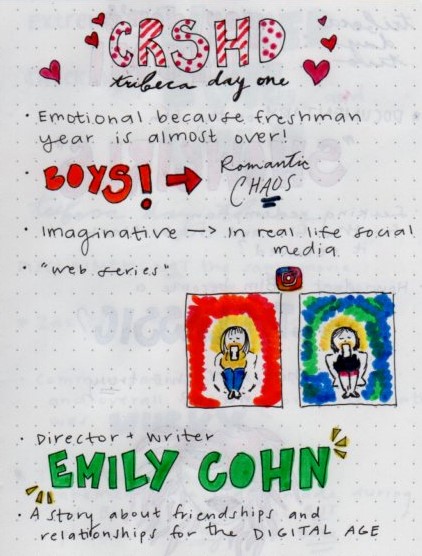 CRSHD
tribeca day one
· Emotional because freshman
year is almost over!
· BOYS! → Romantic
CHAOS
· Imaginative —> In real life social
media
· "web series"
· Director + Writer
EMILY COHN
· A story about friendships and
relationships for the DIGITAL AGE